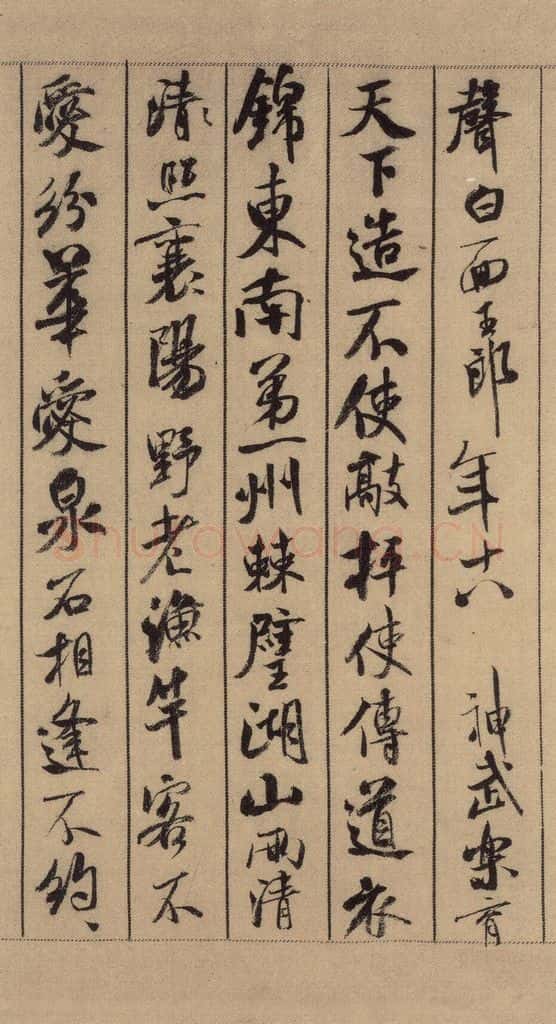 聲白面玉郎年十八 神武樂育
天下造不使敲抨使傳道衣
錦東南第一州棘璧湖山兩清
清照襄陽野老漁竿客不
愛紛華愛泉石相逢不約、
shufawang.CN